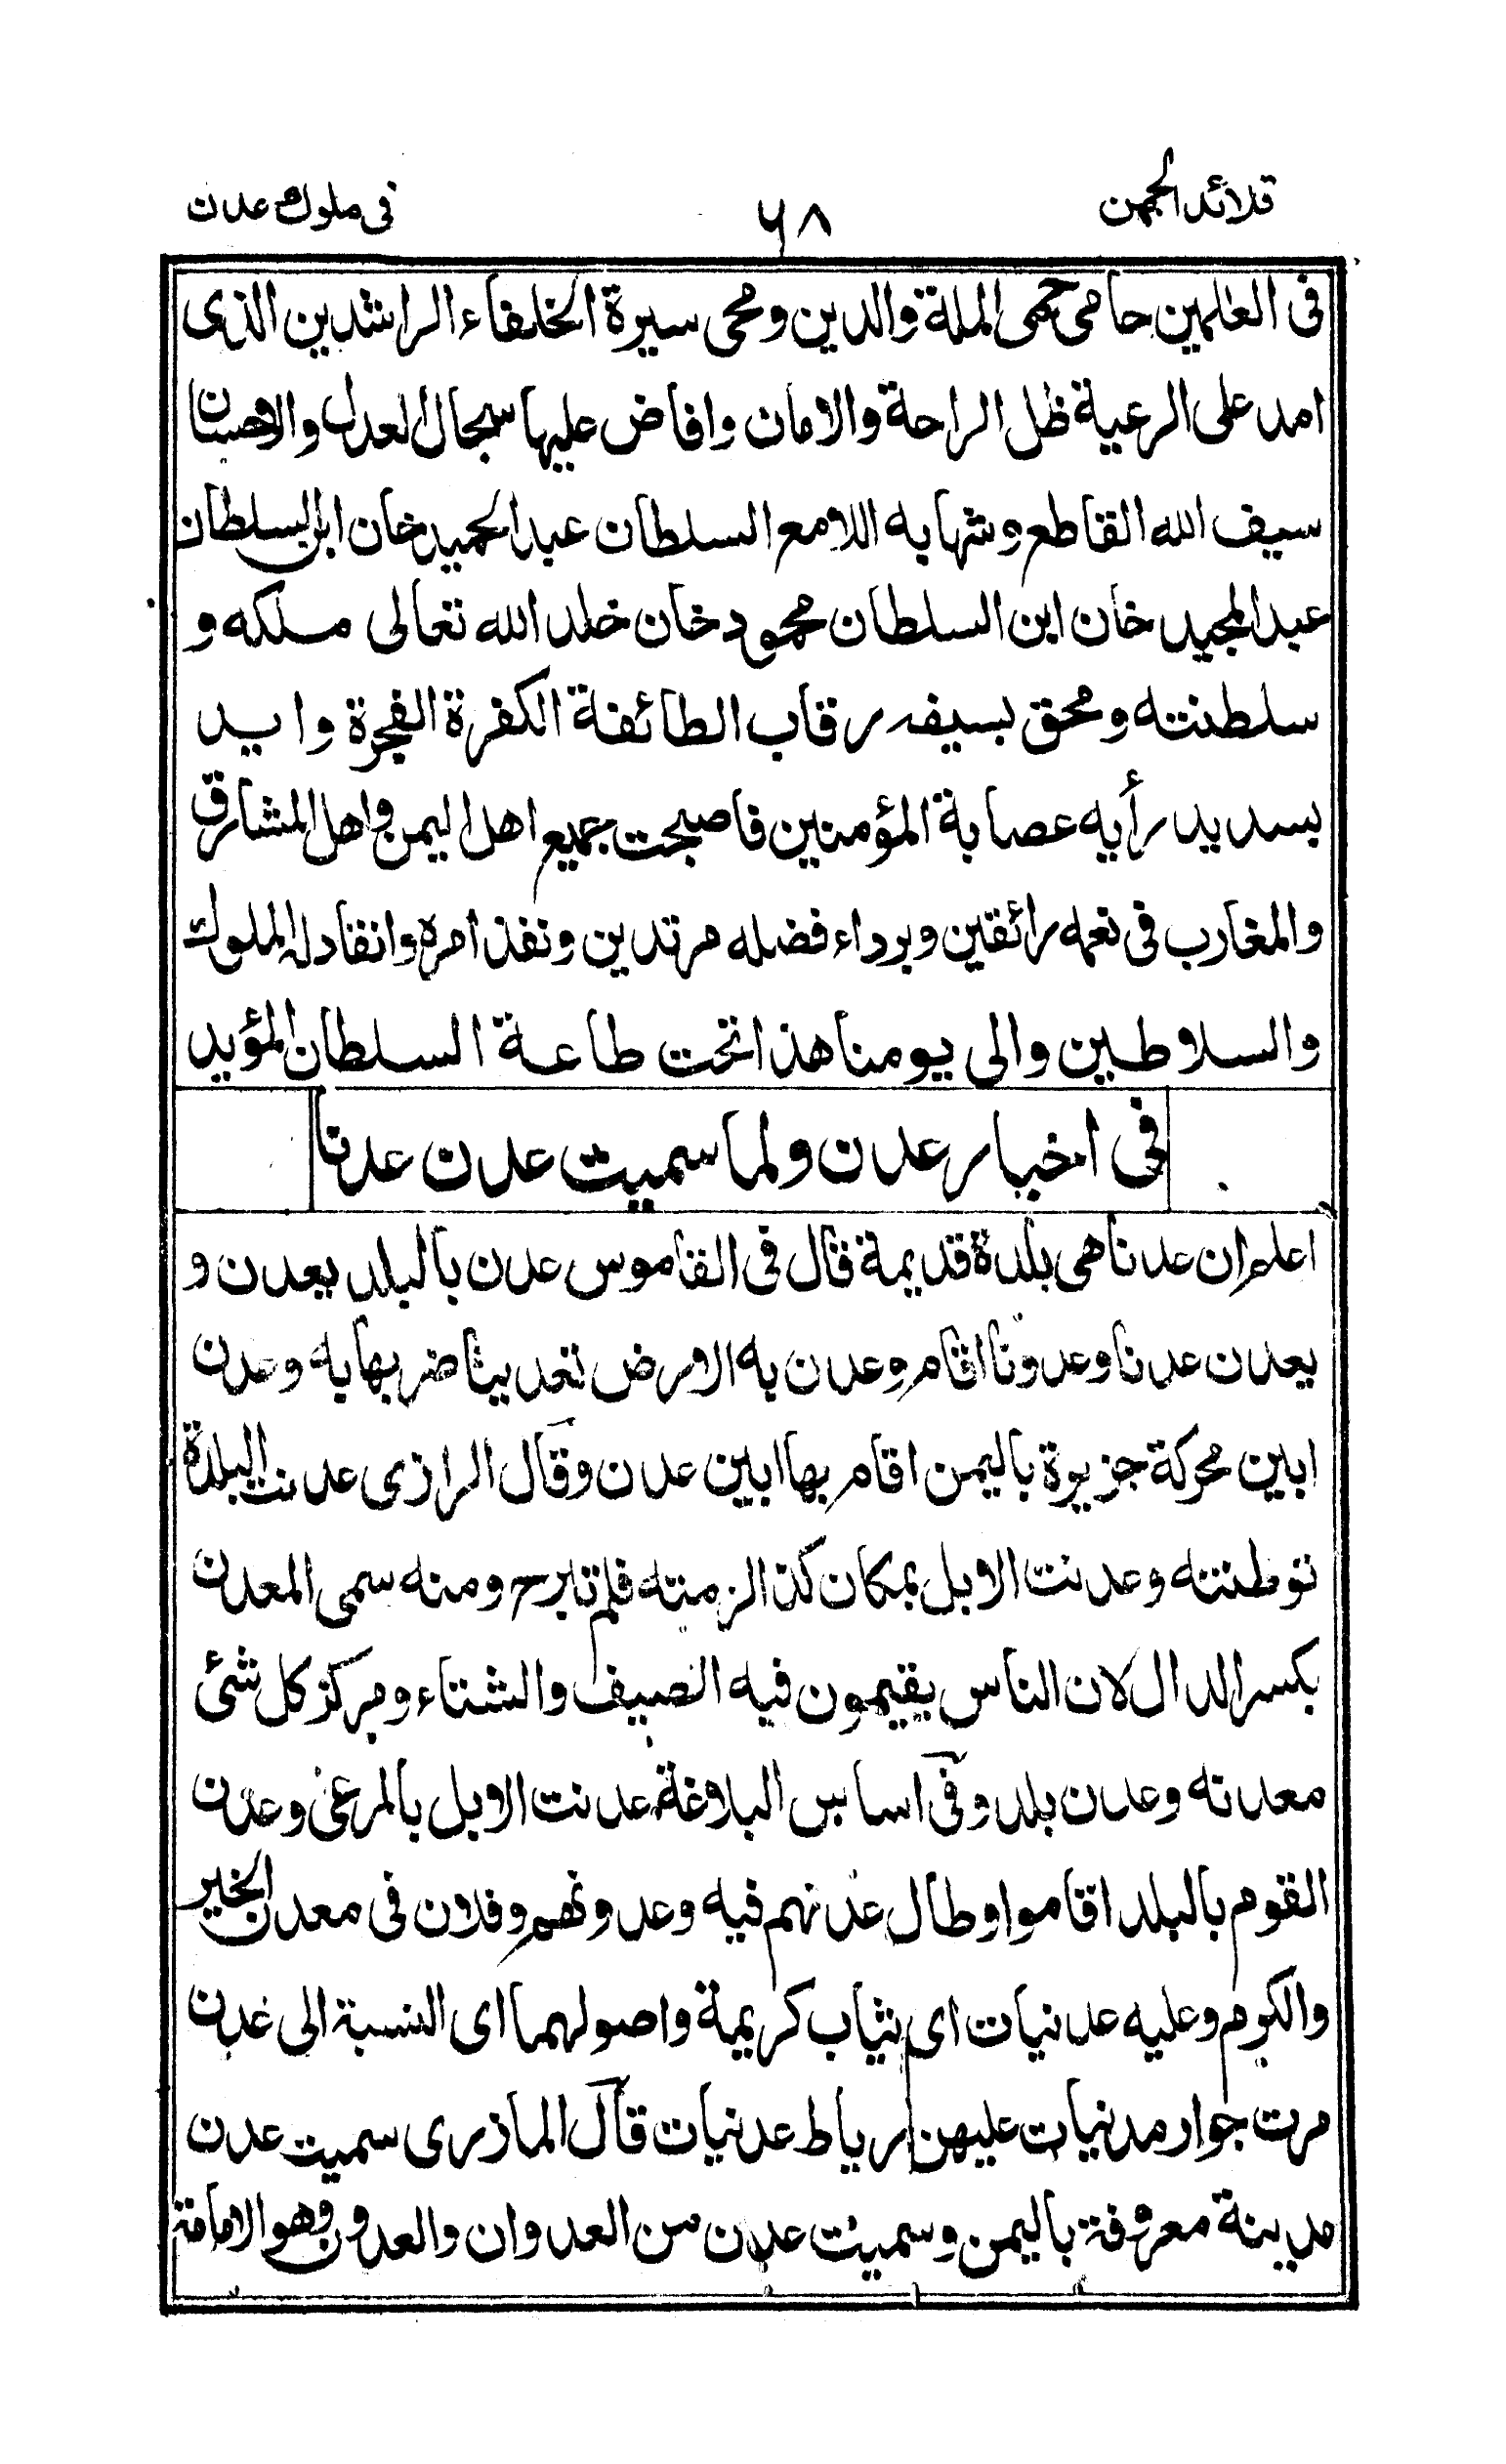 قلائد الجمن ٦٨ فى ملوك عدن
فى العٰلمين حامى حمى الملة والدين ومحى سيرة الخلفاء الراشدين الذى
امد على الرعية ظل الراحة والامان وافاض عليها سجال العدل والاحسان
سيف الله القاطع وشهابه اللامع السلطان عبد الحميد خان ابن السلطان
عبد المجيد خان ابن السلطان محمود خان خلد الله تعالى ملكه و
سلطنته ومحق بسيفه رقاب الطائفة الكفرة الفجرة وايد
بسديد رأيه عصابة المؤمنين فاصبحت جميع اهل اليمن واهل المشارق
والمغارب فى نعمه رائقين وبرداء فضله مرتدين ونفذ امره وانقاد له الملوك
والسلاطين والى يومنا هذا تحت طاعة السلطان المؤيد
فى اخبار عدن ولما سميت عدن عدنا
اعلم ان عدنا هى بلدة قديمة قال فى القاموس عدن بالبلد يعدن و
يعدن عدنا وعدونا اقام وعدن به الارض تعدينا ضربها به وعدن
ابين محركة جزيرة باليمن اقام بها ابين عدن وقال الرازى عدنت البلدة
توطنته وعدنت الابل بمكان كذا لزمته فلم تبرح ومنه سمى المعدن
بكسر الدال لان الناس يقيمون فيه الصيف والشتاء ومركز كل شئ
معدنه وعدن بلد وفى اساس البلاغة عدنت الابل بالمرعى وعدن
القوم بالبلد اقاموا وطال عدنهم فيه وعدونهم وفلان فى معدن الخير
والكرم وعليه عدنيات اى ثياب كريمة واصولهما اى النسبة الى عدن
مرت جوار مدنيات عليهن رياط عدنيات قال المازرى سميت عدن
مدينة معروفة باليمن وسميت عدن من العدوان والعدون وهو الاقامة